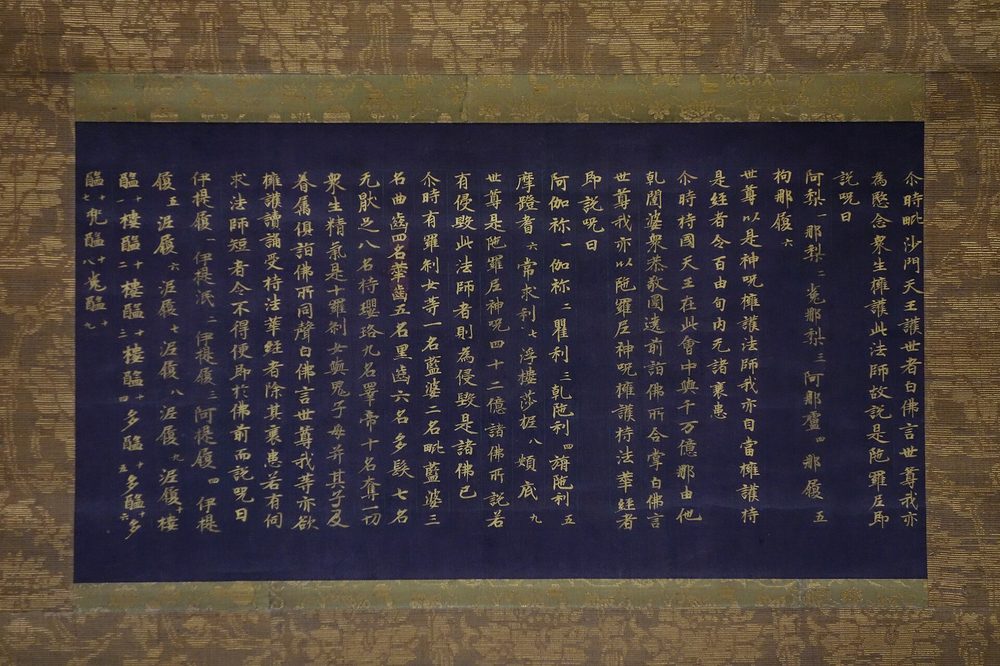 尒時毗沙門天王護世者白佛言世尊我亦
為愍念衆生擁護此法師故說是陁羅尼即
說呪曰
阿梨一那梨二㝹那梨三阿那盧四那履五
拘那履六
世尊以是神呪擁護法師我亦自當擁護持
是經者令百由旬内无諸衰患
尒時持國天王在此會中與千万億那由他
乹闥婆衆恭敬圍遶前詣佛所合掌白佛言
世尊我亦以陁羅尼神呪擁護持法華經者
即說呪曰
阿伽祢一伽祢二瞿利三乹陁利四旃陁利五
摩蹬耆六常求利七浮樓莎柅八頞底九
世尊是陁羅尼神呪四十二億諸佛所說若
有侵毀此法師者則為侵毀是諸佛已
尒時有羅刹女等一名藍婆二名毗藍婆三
名曲齒四名華齒五名黑齒六名多髮七名
无猒足八名持瓔珞九名睪帝十名奪一切
衆生精氣是十羅刹女與鬼子母并其子及
眷属俱詣佛所同聲白佛言世尊我等亦欲
擁護讀誦受持法華經者除其衰患若有伺
求法師短者令不得便即於佛前而說呪曰
伊提履一伊提泯二伊提履三阿提履四伊提
履五泥履六泥履七泥履八泥履九泥履十樓
醯十一樓醯十二樓醯十三樓醯十四多醯十五多醯十六多
醯十七兜醯十八㝹醯十九